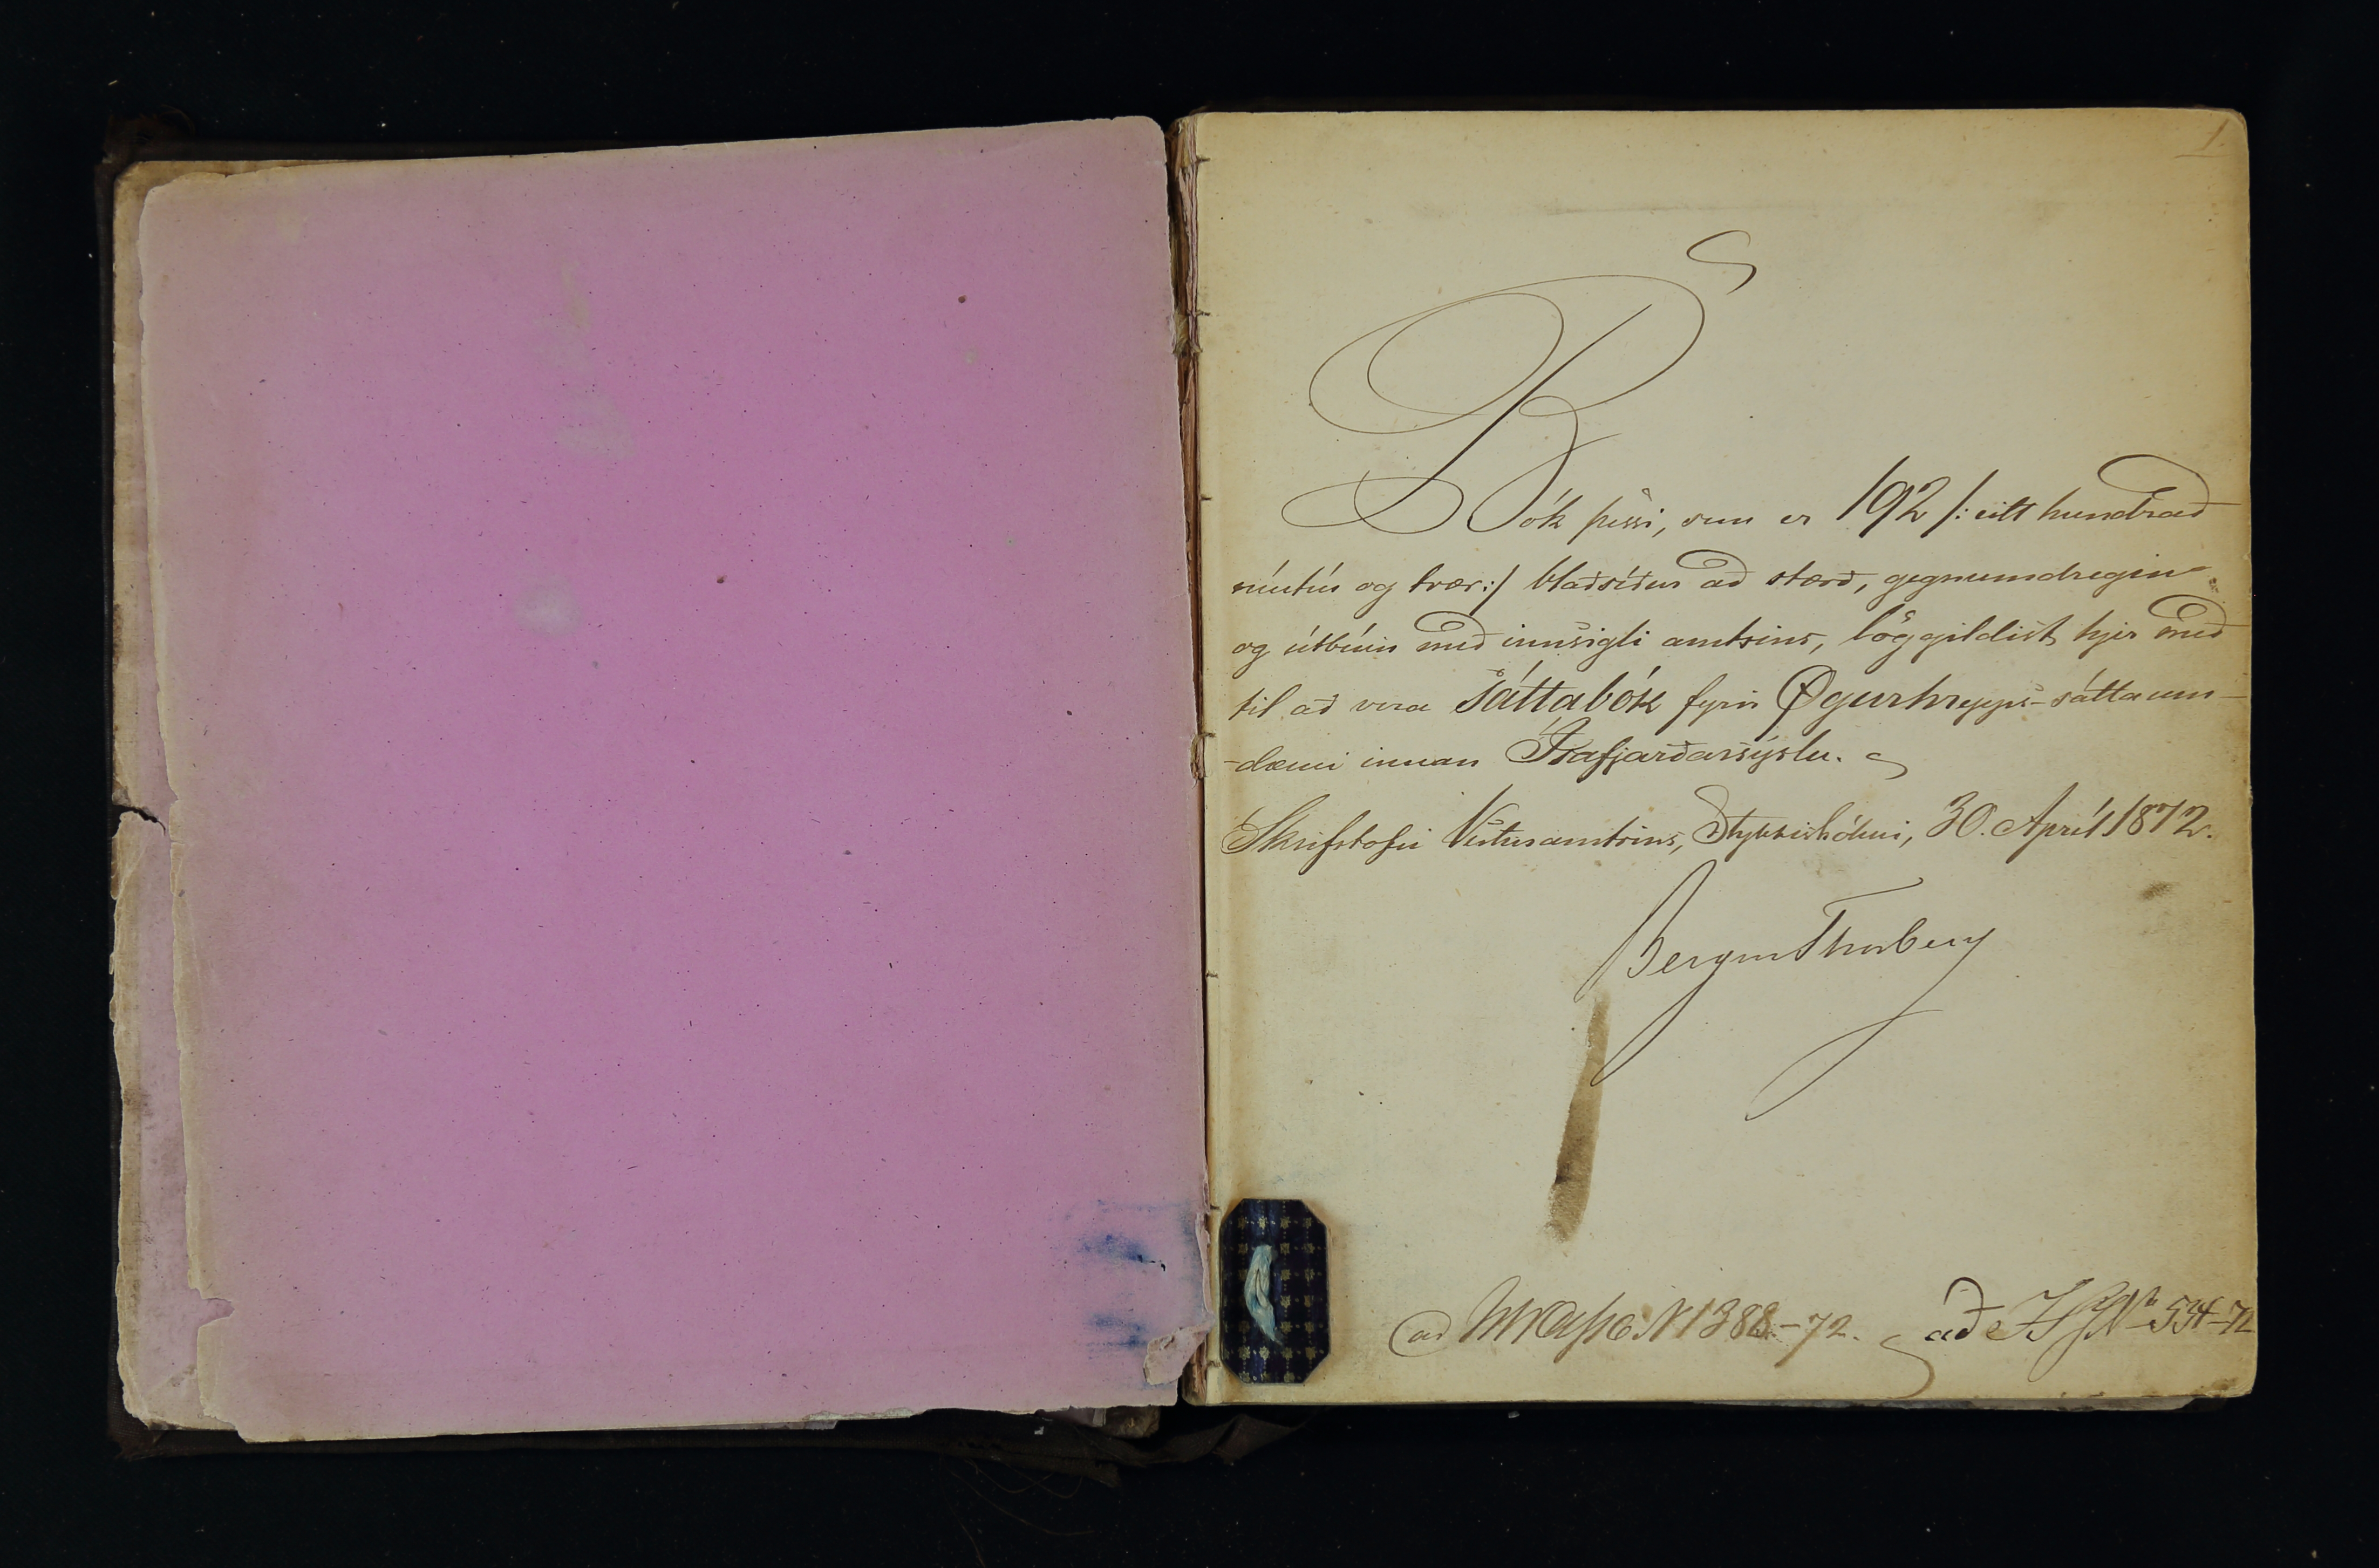 1.
Bók þessi, sem er 192 /: eitt hundrað
níutíu og tvær :/ blaðsíður að stærð, gegnumdregin
og útbúin með innsigli amtsins, löggildist hjer með
til að vera sáttabók fyrir Øgurhrepps-sáttaum-
-dæmi innan Ísafjarðarsýslu.
Skrifstofu Vesturamtsins, Stykkishólmi, 30. Apríl 1872.
Bergur Thorberg
ad N 1388-72. að No 534-72